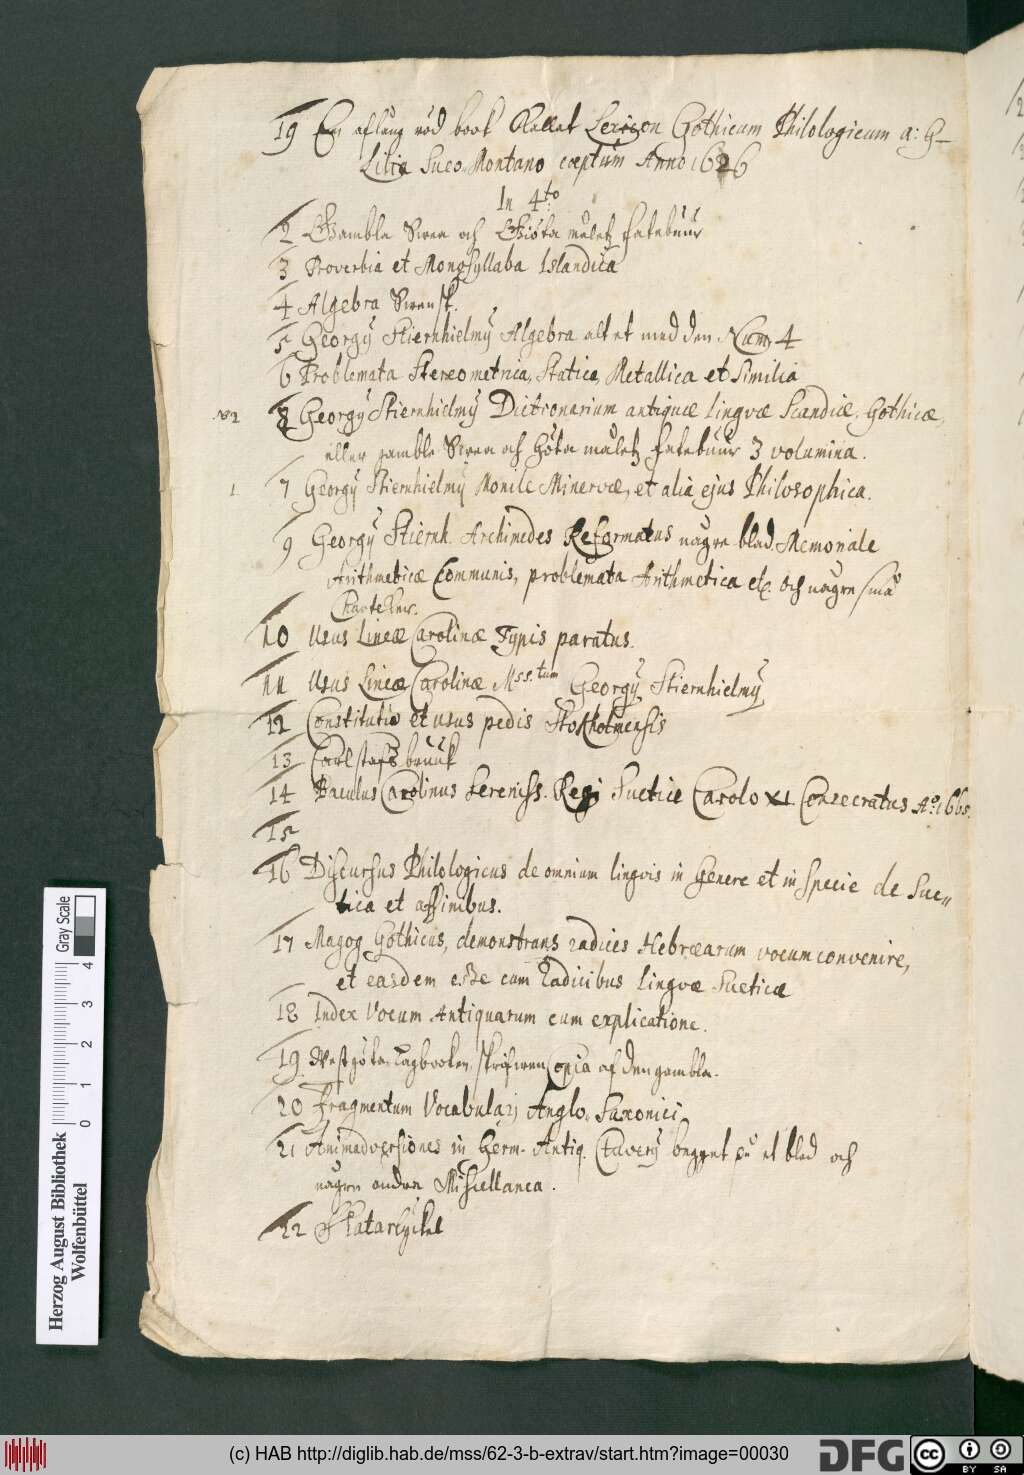 19 En aflång röd book kallat Lexicon Gothicum Philologicum a: G–
Lilia Sueo-Montano cœptum Anno 1626
In 4to
2 Gambla Swea och Giöta måletz fatebuur
3 Proverbia et Monosyllaba Islandica
4 Algebra Swensk.
5 Georgÿ Stiernhielmÿ Algebra alt et med den Num 4
6 Problemata Stereometrica, Statica, Metallica et Similia
N 2 8 Georgÿ Stiernhielmÿ Dictionarium antiquæ lingvæ Scandicæ, Gothicæ,
eller gamble Swea och Göta måletz fatebuur 3 volumina.
1 7 Georgÿ Stiernhielmÿ Monile Minervæ, et alia ejus Philosophica.
9 Georgÿ Stiernh. Archimedes Reformatus några blad. Memoriale
Arithmeticæ Communis, problemata Arithmetica etc. och någre små
Charteker.
10 Usus Lineæ Carolinæ Typis paratus.
11 Usus Lineæ Carolinæ Mss.tum Georgÿ Stiernhielmÿ
12 Constitutio et usus pedis Stokholmensis
13 Carl stafs bruuk
14 Baculus Carolinus Sereniss. Regi Sueticæ Carolo XI Consecratus Ao. 1665.
15
16 Discursus Philologicus de omnium lingvis in Genere et in Specie de Sue„
tica et affinibus.
17 Magog Gothicus, demonstrans radices Hebræarum vocum convenire,
et easdem esse cum radicibus lingvæ Sueticæ
18 Index Vocum Antiquarum cum explicatione.
19. Westgöta Lagbooken, skrifwen Copia af den gambla.
20 Fragmentum Vocabularj Anglo-Saxonici
21 Animadversiones in Germ. Antiq. Cluverÿ begynt på et blad och
någre andra Miscellanea.
22
Herzog August Bibliothek
Wolfenbüttel
0 1 2 3 4
Gray Scale
(c) HAB http://diglib.hab.de/mss/62-3-b-extrav/start.htm?image=00030
DFG
cc BY SA